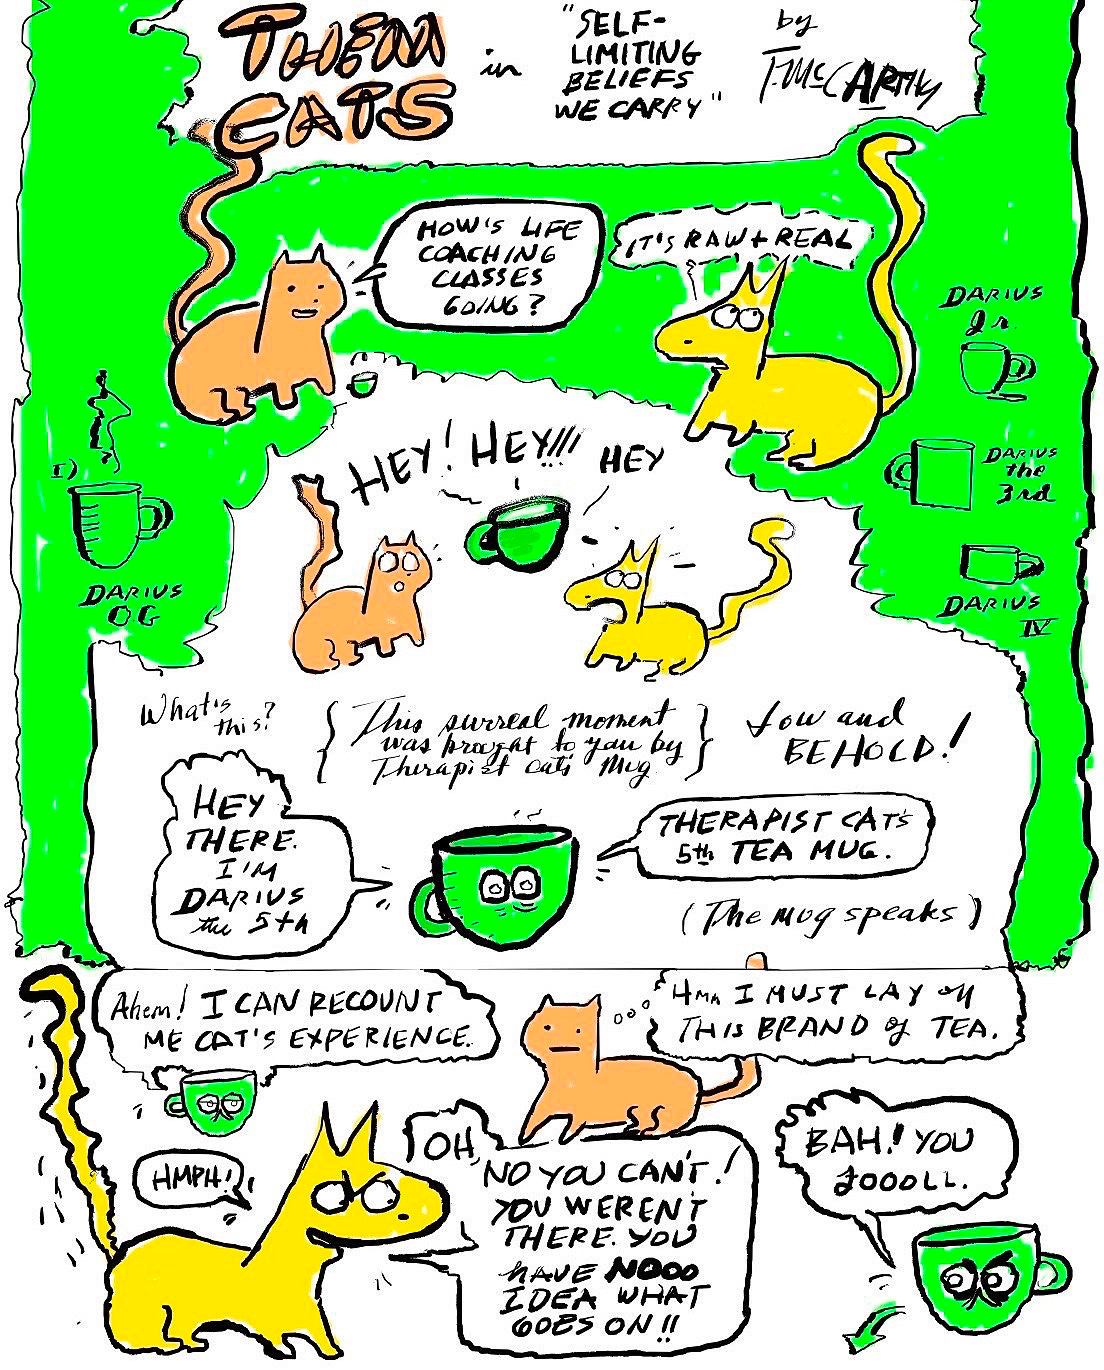 THEM
CATS
in
"SELF-
LIMITING
BELIEFS
WE CARRY"
by
T. McCARTHY
HOW'S LIFE
COACHING
CLASSES
GOING?
IT'S RAW + REAL
DARIUS
Jr.
DARIUS
the
3rd
DARIUS
IV
1)
DARIUS
OG
HEY! HEY!!! HEY
What's
this?
{ This surreal moment
was brought to you by
Therapist Cat's Mug }
Low and
BEHOLD!
HEY
THERE.
I'M
DARIUS
the 5th
THERAPIST CAT'S
5th TEA MUG.
(The mug speaks)
Ahem! I CAN RECOUNT
ME CAT'S EXPERIENCE.
Hmm I MUST LAY off
THIS BRAND of TEA.
HMPH!
OH,
NO YOU CAN'T!
YOU WEREN'T
THERE. YOU
HAVE NOOO
IDEA WHAT
GOES ON!!
BAH! YOU